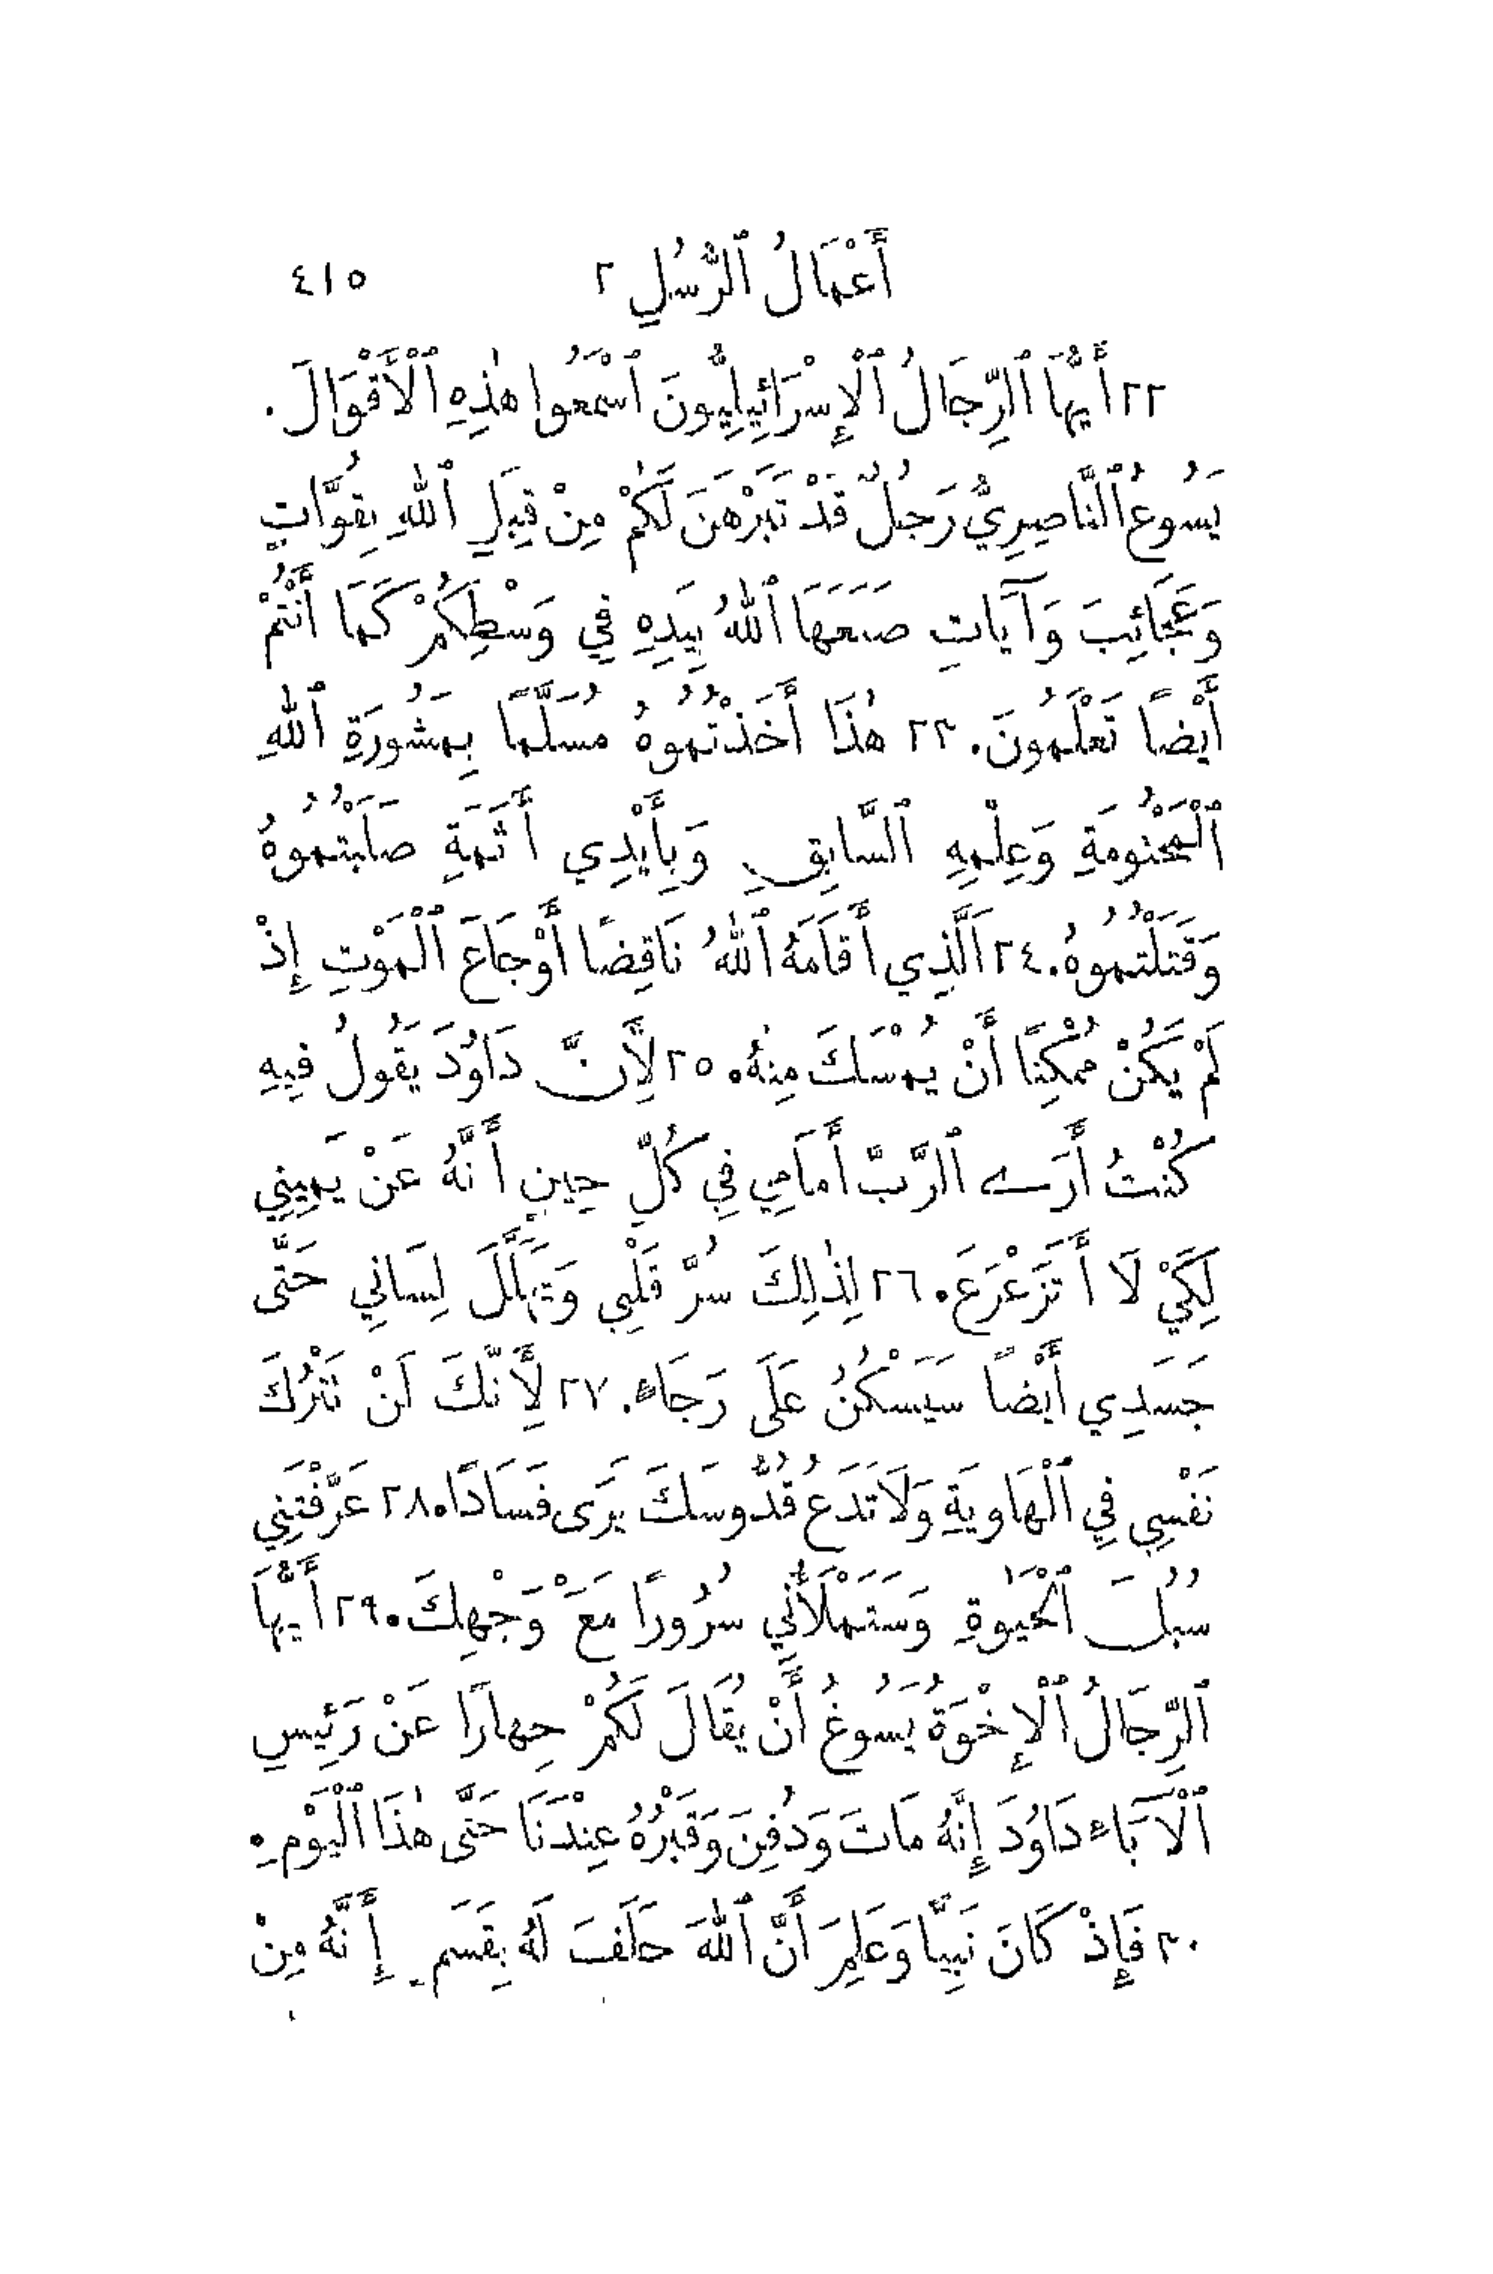 أَعْمَالُ ٱلرُّسُلِ ٢ ٤١٥
٢٢ أَيُّهَا ٱلرِّجَالُ ٱلْإِسْرَائِيلِيُّونَ ٱسْمَعُوا هٰذِهِ ٱلْأَقْوَالَ.
يَسُوعُ ٱلنَّاصِرِيُّ رَجُلٌ قَدْ تَبَرْهَنَ لَكُمْ مِنْ قِبَلِ ٱللهِ بِقُوَّاتٍ
وَعَجَائِبَ وَآيَاتٍ صَنَعَهَا ٱللهُ بِيَدِهِ فِي وَسْطِكُمْ كَمَا أَنْتُمْ
أَيْضًا تَعْلَمُونَ. ٢٣ هٰذَا أَخَذْتُمُوهُ مُسَلَّمًا بِمَشُورَةِ ٱللهِ
ٱلْمَحْتُومَةِ وَعِلْمِهِ ٱلسَّابِقِ وَبِأَيْدِي أَثَمَةٍ صَلَبْتُمُوهُ
وَقَتَلْتُمُوهُ. ٢٤ اَلَّذِي أَقَامَهُ ٱللهُ نَاقِضًا أَوْجَاعَ ٱلْمَوْتِ إِذْ
لَمْ يَكُنْ مُمْكِنًا أَنْ يُمْسَكَ مِنْهُ. ٢٥ لِأَنَّ دَاوُدَ يَقُولُ فِيهِ
كُنْتُ أَرَى ٱلرَّبَّ أَمَامِي فِي كُلِّ حِينٍ أَنَّهُ عَنْ يَمِينِي
لِكَيْ لَا أَتَزَعْزَعَ. ٢٦ لِذٰلِكَ سُرَّ قَلْبِي وَتَهَلَّلَ لِسَانِي حَتَّى
جَسَدِي أَيْضًا سَيَسْكُنُ عَلَى رَجَاءٍ. ٢٧ لِأَنَّكَ لَنْ تَتْرُكَ
نَفْسِي فِي ٱلْهَاوِيَةِ وَلَا تَدَعُ قُدُّوسَكَ يَرَى فَسَادًا. ٢٨ عَرَّفْتَنِي
سُبُلَ ٱلْحَيٰوةِ وَسَتَمْلَأُنِي سُرُورًا مَعَ وَجْهِكَ. ٢٩ أَيُّهَا
ٱلرِّجَالُ ٱلْإِخْوَةُ يَسُوغُ أَنْ يُقَالَ لَكُمْ جِهَارًا عَنْ رَئِيسِ
ٱلْآبَاءِ دَاوُدَ إِنَّهُ مَاتَ وَدُفِنَ وَقَبْرُهُ عِنْدَنَا حَتَّى هٰذَا ٱلْيَوْمِ.
٣٠ فَإِذْ كَانَ نَبِيًّا وَعَلِمَ أَنَّ ٱللهَ حَلَفَ لَهُ بِقَسَمٍ إِنَّهُ مِنْ